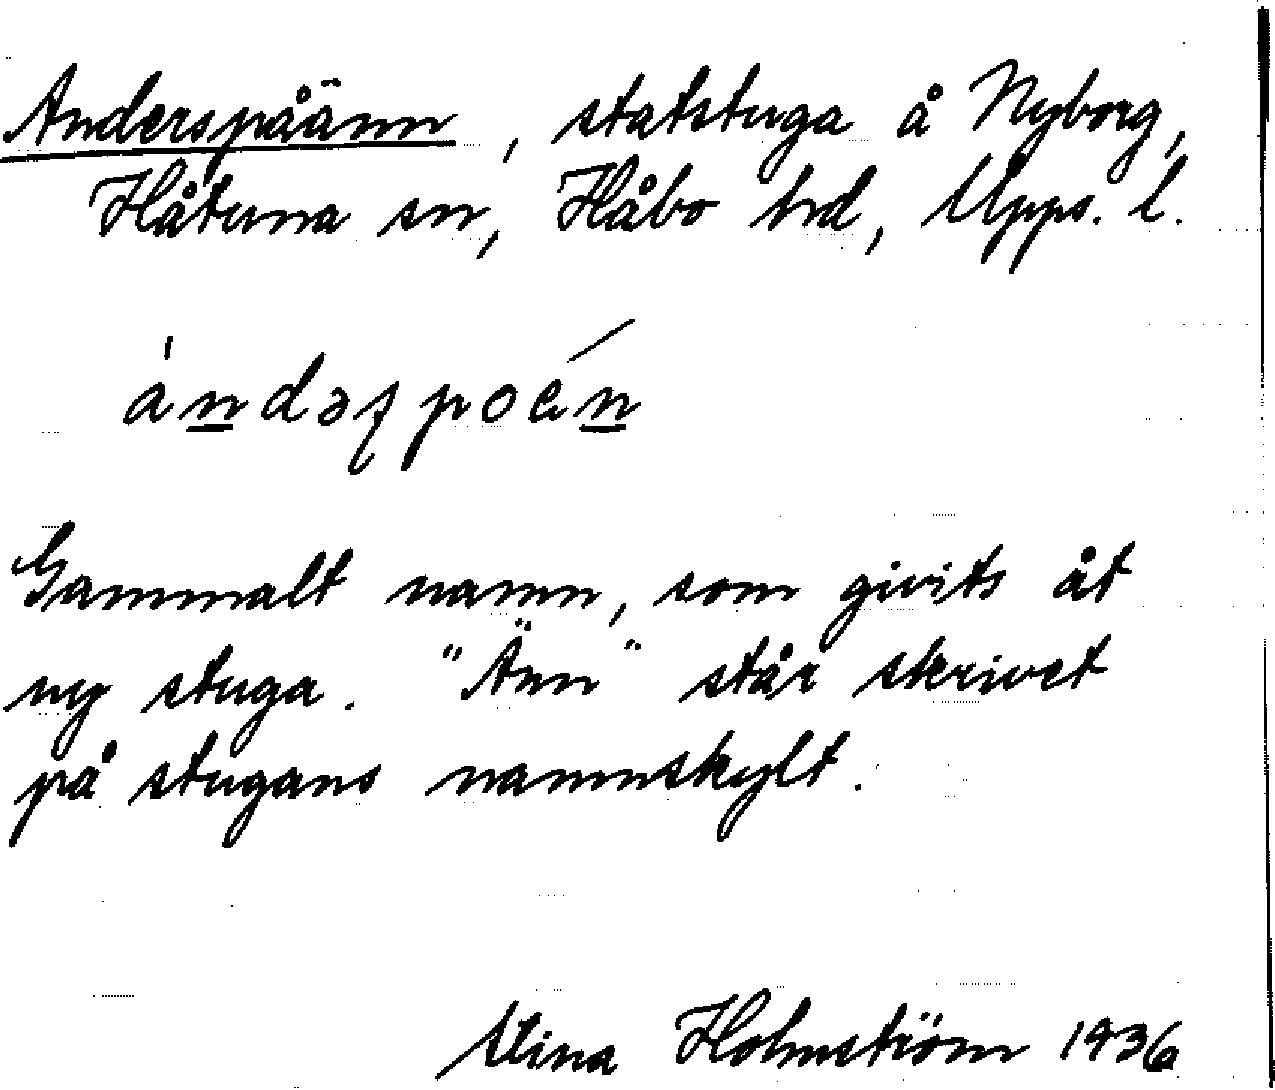 Anderspåänn, statstuga å Nyborg,
Håtuna sn, Håbo hd, Upps. l.
ándəʂpoén
Gammalt namn, som givits åt
ny stuga. "Änn" står skrivet
på stugans namnskylt.
Stina Holmström 1936